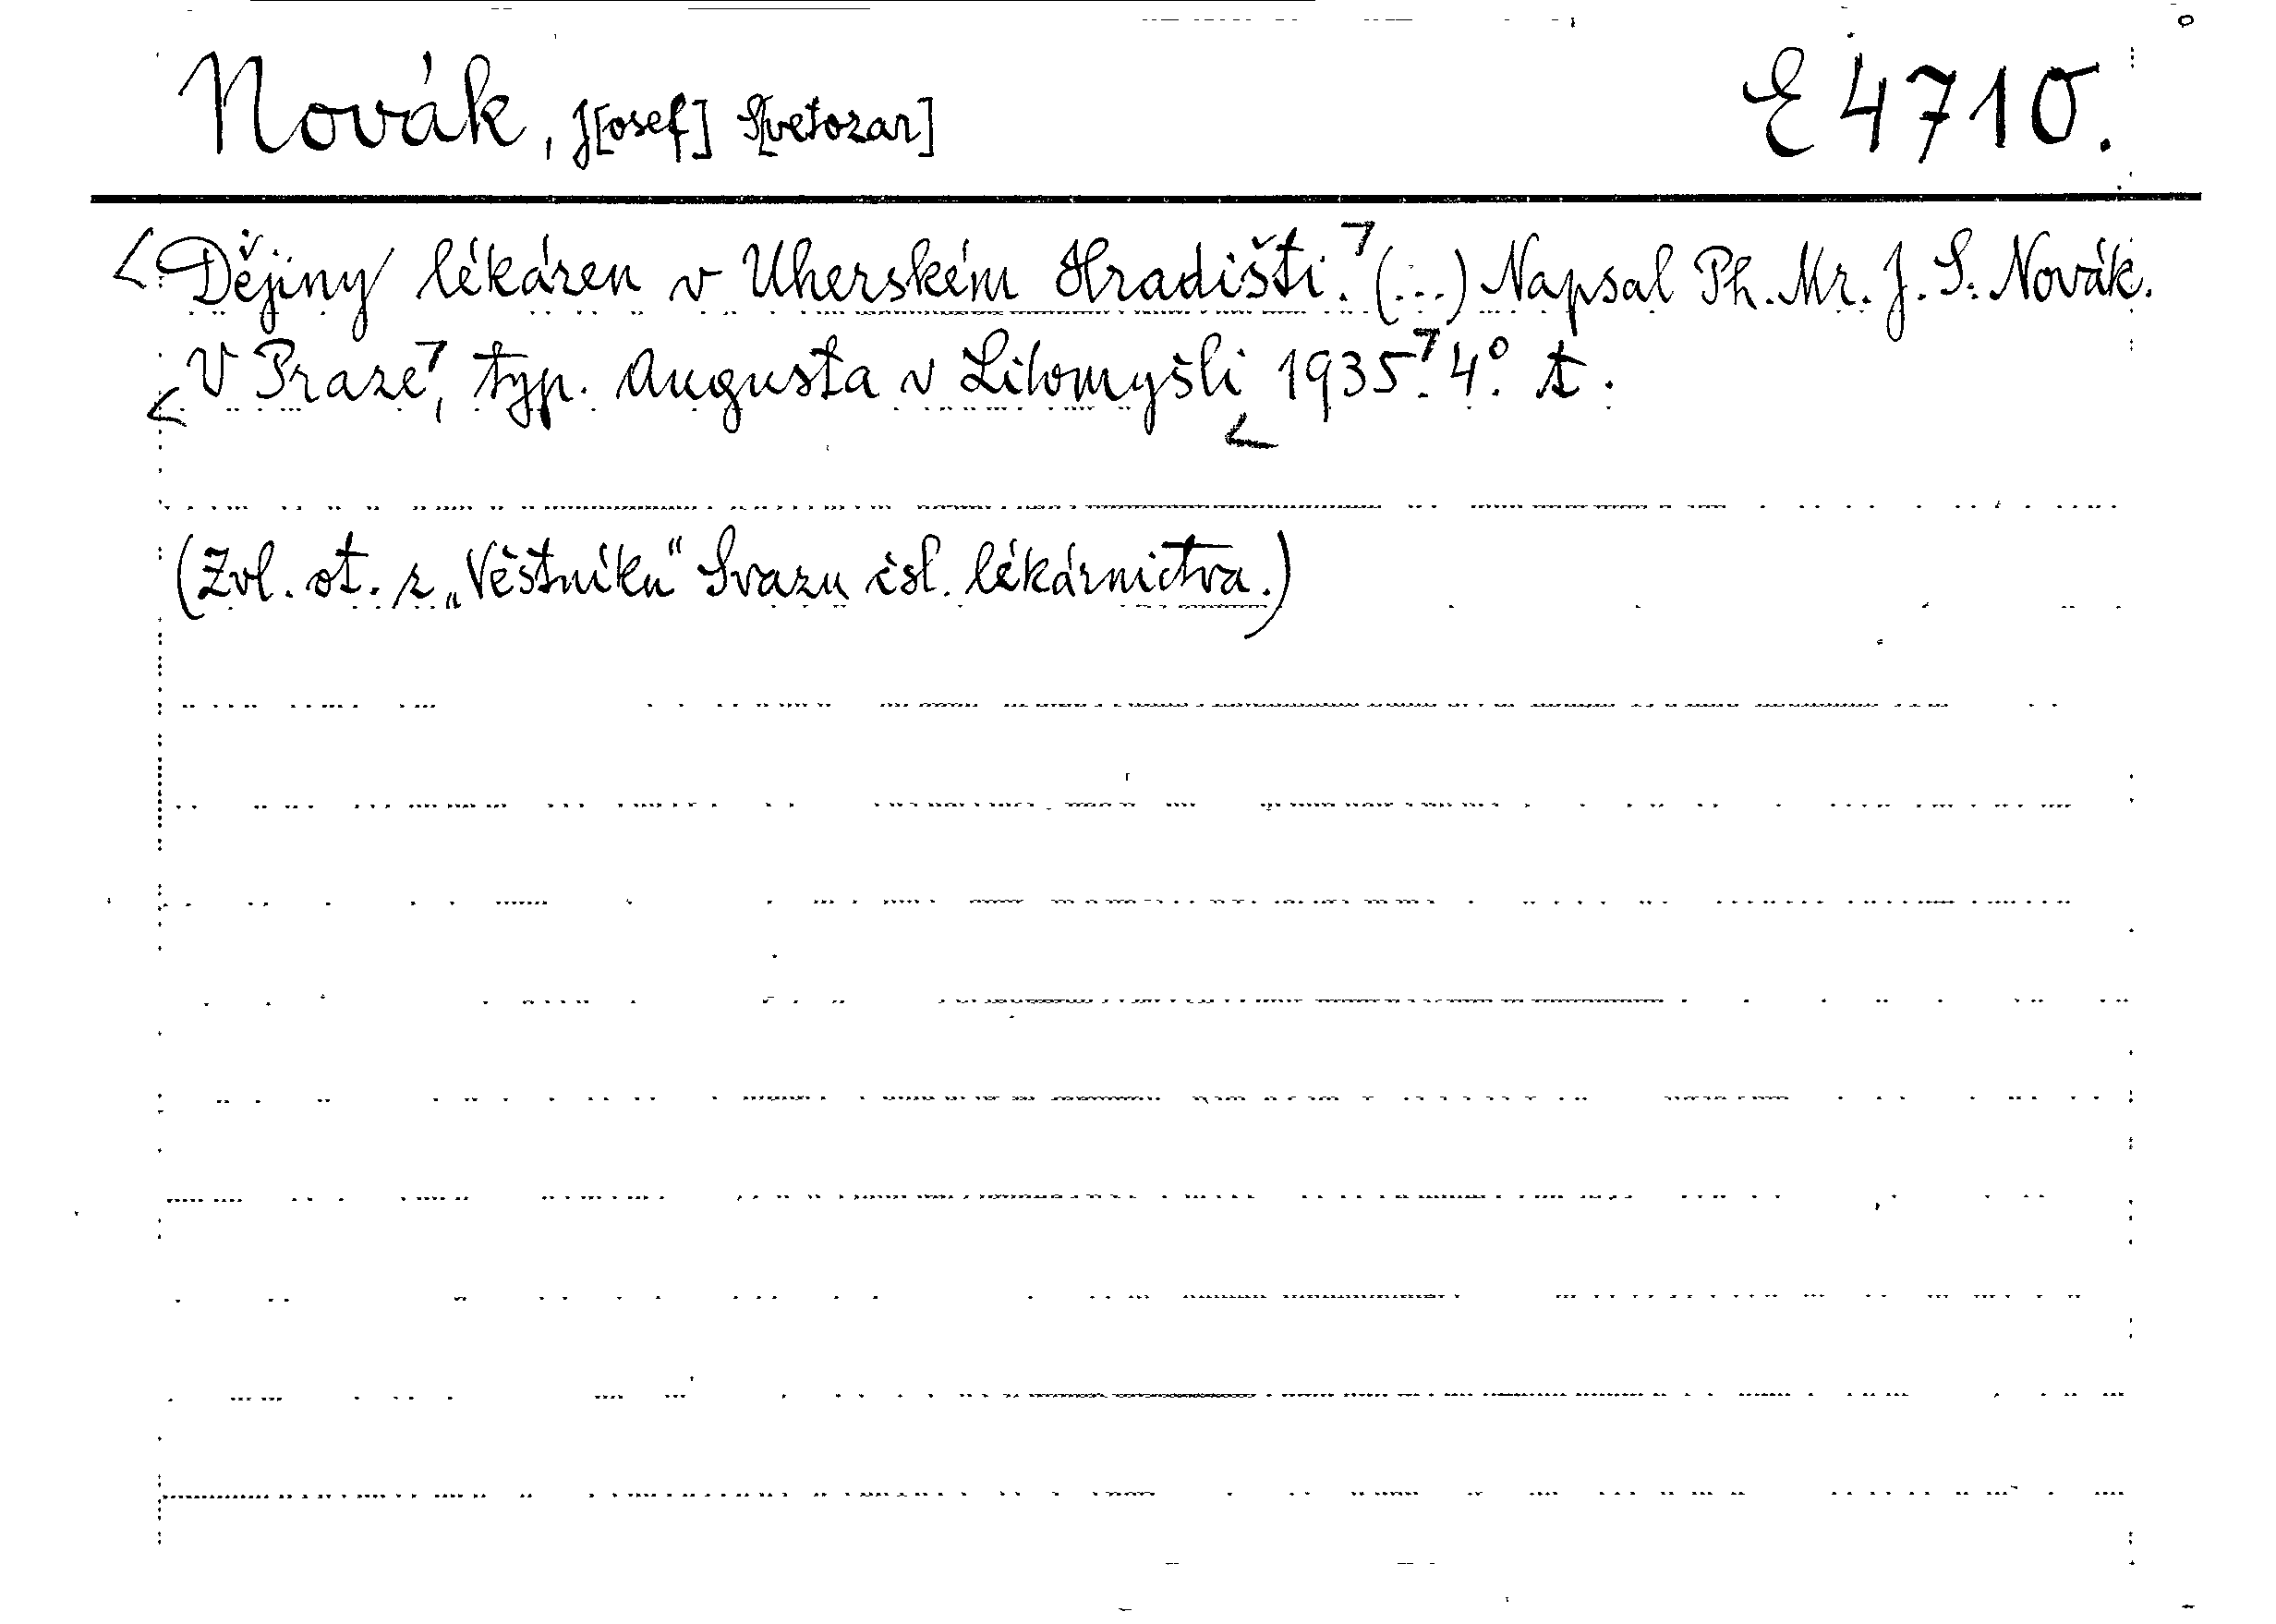 Novák, J[osef] S[vetozar] E 4710.
<Dějiny lékáren v Uherském Hradišti.⁊ (...) Napsal Ph. Mr. J. S. Novák.
<V Praze⁊, typ. Augusta v Litomyšli <1935.⁊ 4°. t.
(Zvl. ot. z „Věstníku“ Svazu čsl. lékárnictva.)